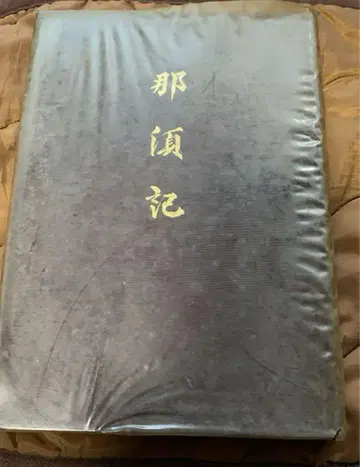 那須記